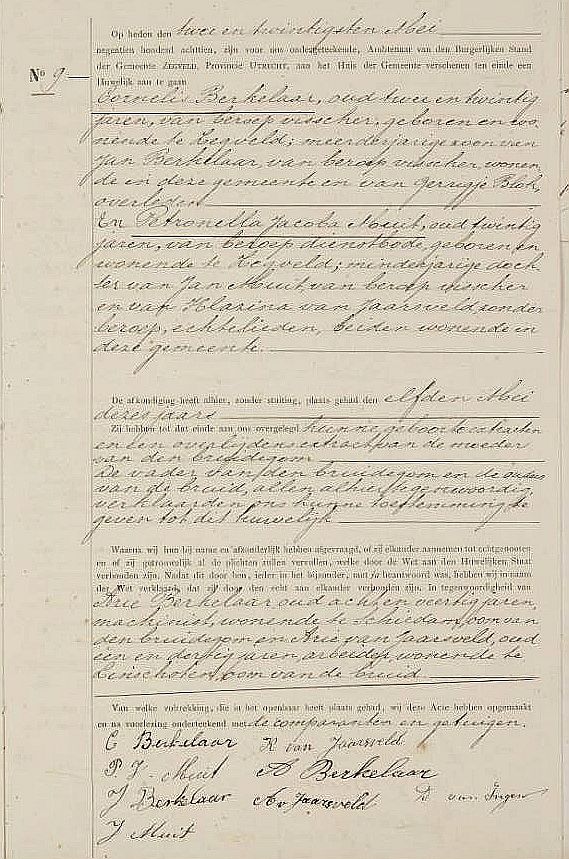 Op heden den twee en twintigsten Mei
negentien honderd achttien, zijn voor ons ondergeteekende, Ambtenaar van den Burgerlijken Stand
der Gemeente ZEGVELD, Provincie UTRECHT, aan het Huis der Gemeente verschenen ten einde een
Nº 9
Huwelijk aan te gaan
Cornelis Berkelaar, oud twee en twintig
jaren, van beroep visscher, geboren en wo-
nende te Zegveld; meerderjarige zoon van
Jan Berkelaar van beroep visscher wonen
de in deze gemeente en van Gerrigje Blok,
overleden
En Petronella Jacoba Muit, oud twintig
jaren, van beroep dienstbode, geboren en
wonende te Zegveld; minderjarige doch
ter van Jan Muit van beroep visscher
en van Klazina van Jaarsveld zonder
beroep, echtelieden, beiden wonende in
deze gemeente.
De afkondiging heeft alhier, zonder stuiting, plaats gehad den elfden Mei
dezes jaars
Zij hebben tot dat einde aan ons overgelegd hunne geboorte extracten
en een overlijdens extract van de moeder
van den bruidegom
De vader van den bruidegom en de ouders
van de bruid, allen alhier tegenwoordig,
verklaarden ons hunne toestemming te
geven tot dit huwelijk
Waarna wij hun bij name en afzonderlijk hebben afgevraagd, of zij elkander aannemen tot echtgenooten
en of zij getrouwelijk al de plichten zullen vervullen, welke door de Wet aan den Huwelijken Staat
verbonden zijn. Nadat dit door hen, ieder in het bijzonder, met ja beantwoord was, hebben wij in naam
der Wet verklaard, dat zij door den echt aan elkander verbonden zijn. In tegenwoordigheid van
Arie Berkelaar oud acht en veertig jaren,
machinist, wonende te Schiedam, oom van
den bruidegom en Arie van Jaarsveld, oud
een en dertig jaren, arbeider, wonende te
Linschoten, oom van de bruid.
Van welke voltrekking, die in het openbaar heeft plaats gehad, wij deze Acte hebben opgemaakt
en na voorlezing onderteekend met de comparanten en getuigen.
C Berkelaar K van Jaarsveld
P. J. Muit A Berkelaar
J Berkelaar A v Jaarsveld D van Ingen
J Muit